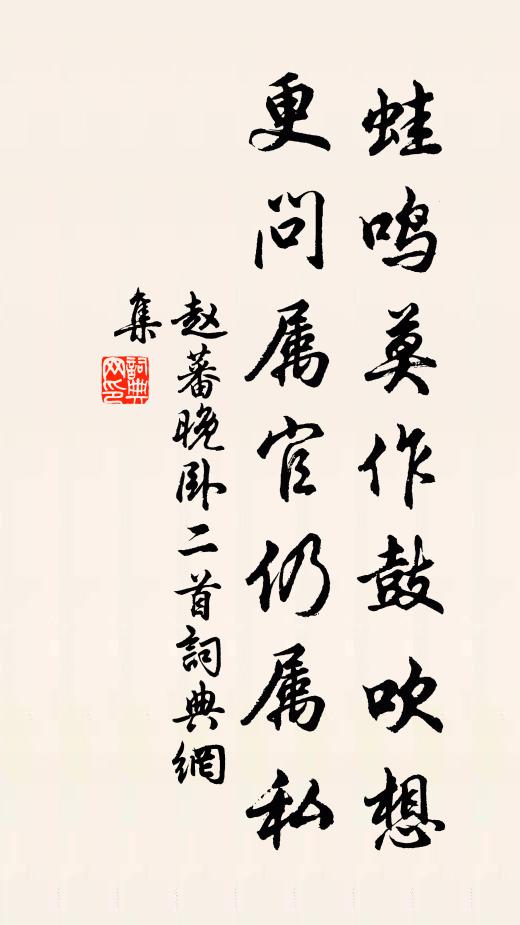 蛙鸣莫作鼓吹想
更问属官仍属私
赵蕃晚卧二首詞典網
集
詞典网印